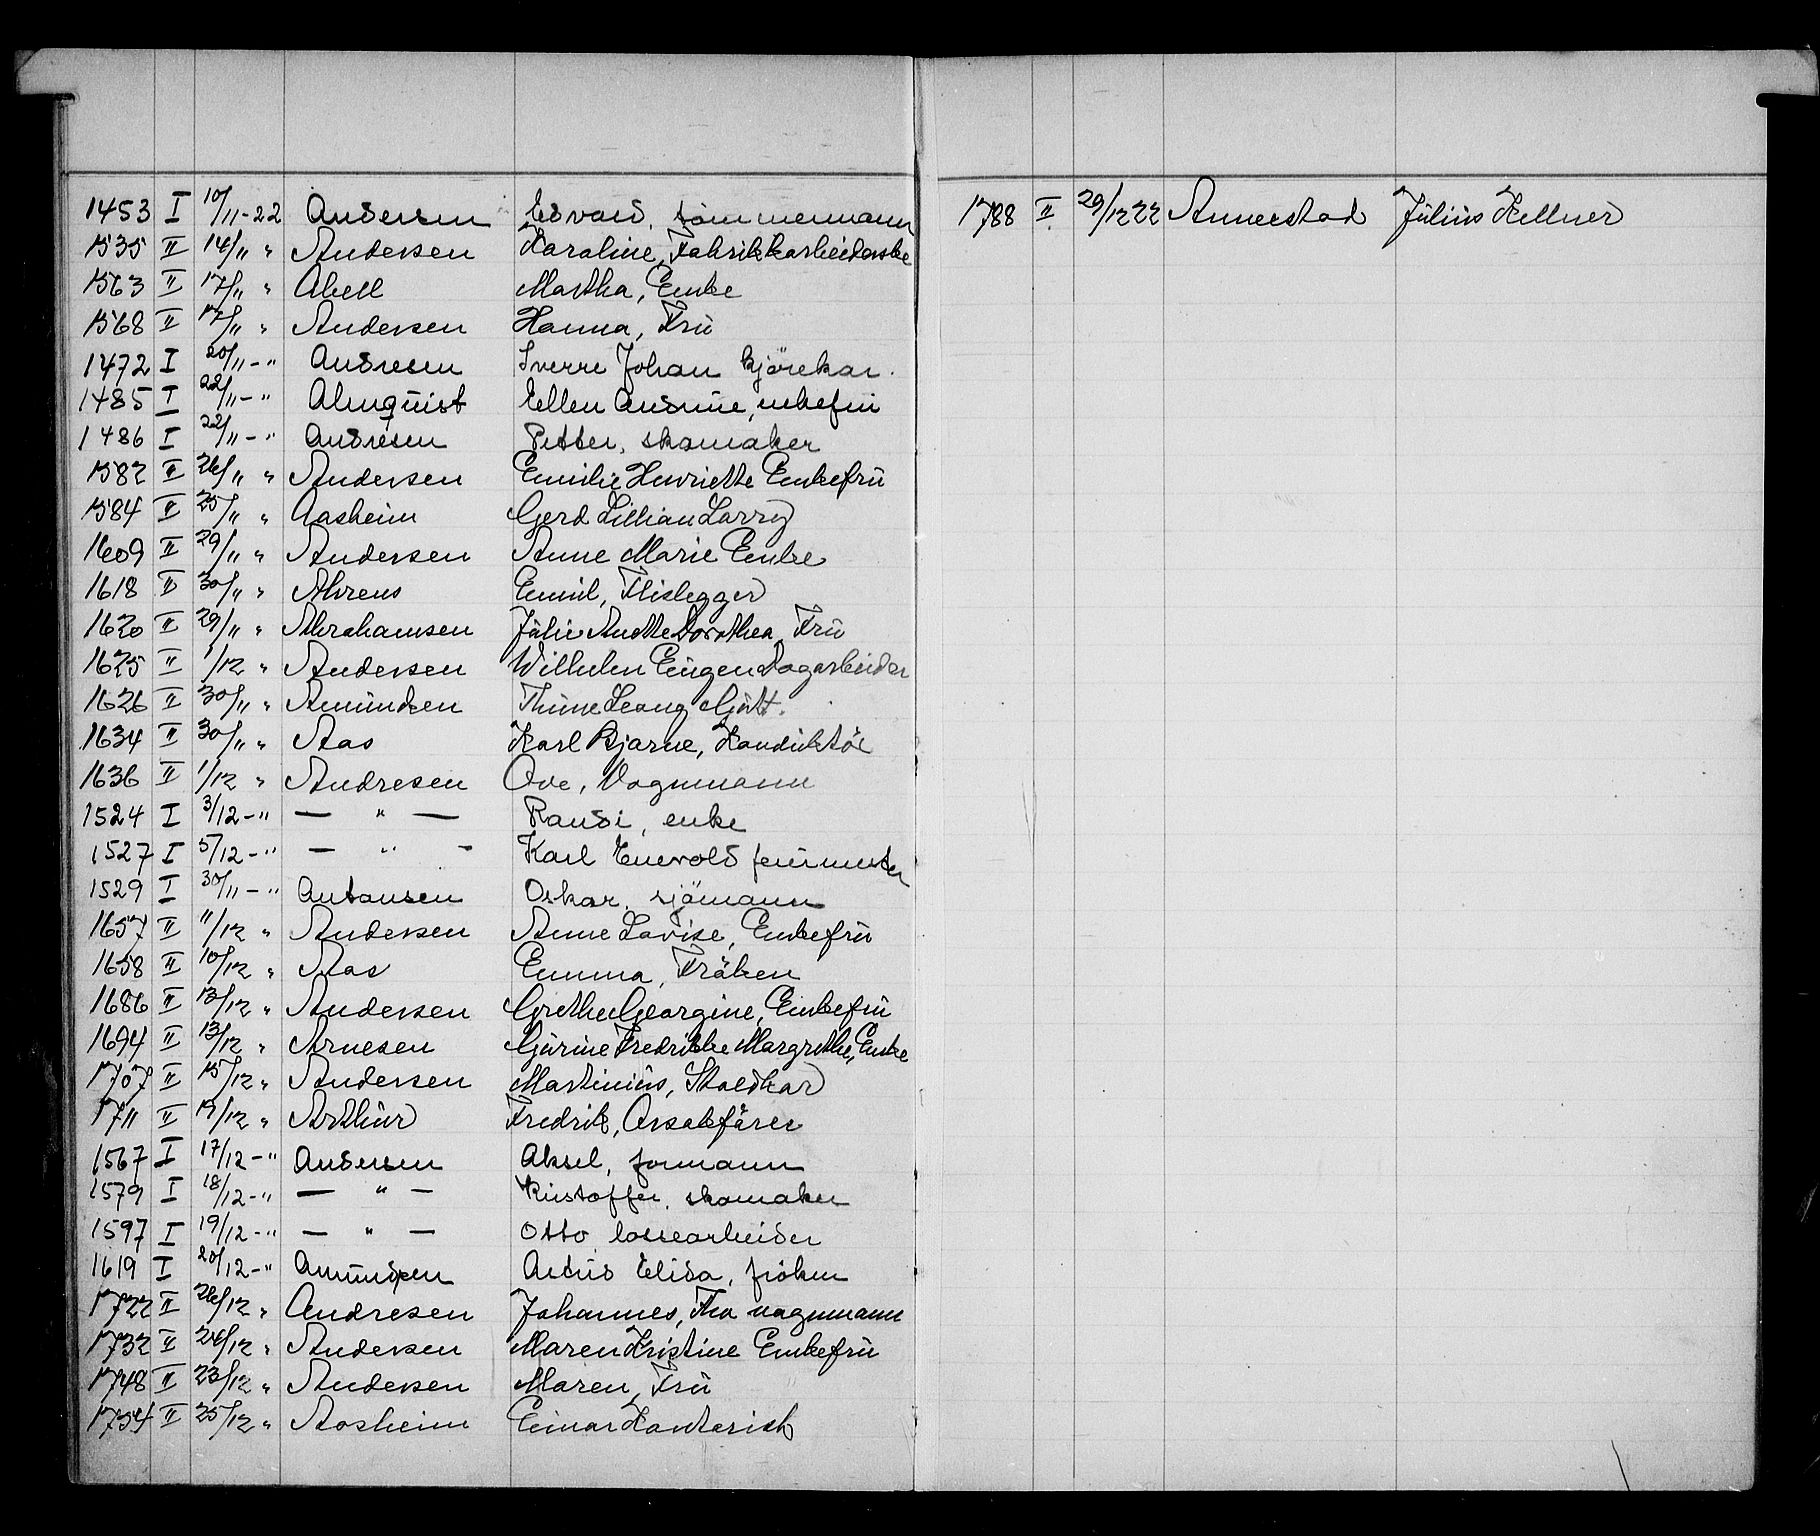 1453 I 10/11-22 Andersen Edvard, tømmermann
1535 II 14/11 " Andersen Karoline, Fabrikkarbeiderske
1563 II 17/11 " Abell Martha, Enke
1568 II 17/11 " Andersen Hanna, Frü
1472 I 20/11-" Andresen Sverre Johan kjörekar.
1485 I 22/11-" Almquist Ellen Andrine, enkefrü
1486 I 22/11-" Andresen Petter, skomaker
1582 II 26/11 " Andersen Emilie Henriette Enkefrü
1584 II 25/11 " Aasheim Gerd Lillian Larry
1609 II 29/11 " Andersen Anne Marie Enke
1618 II 30/11 " Ahrens Emil, Flislegger
1620 II 29/11 " Abrahamsen Julie Anette Dorothea, Frü
1625 II 1/12 " Andersen Wilhelm Eugen Dagarbeider
1626 II 30/11 " Amündsen
1634 II 30/11 " Aas Karl Bjarne, Konduktör
1636 II 1/12 " Andresen Ove, Vognmann
1524 I 3/12-" — " — Randi, enke
1527 I 5/12-" — " — Karl Enevold
1529 I 30/11-" Antonsen Oskar, sjömann
1657 II 11/12 " Andersen Anne Lovise, Enkefrü
1658 II 10/12 " Aas Emma, Fröken
1686 II 13/12 " Andersen Grethe Georgine, Enkefrü
1694 II 13/12 " Arnesen Gürine Fredrikke Margrethe, Enke
1707 II 15/12 " Andersen Martinius, Staldkar
1711 II 17/12 " Arthür Fredrik,
1567 I 17/12-" Andersen Aksel, formann
1579 I 18/12-" — " — Kristoffer, skomaker
1597 I 19/12-" — " — Otto lossearbeider
1619 I 20/12-" Amündsen Elida, fröken
1722 II 26/12 " Andresen Johannes, Fhv vognmann
1732 II 24/12 " Andersen Maren Kristine Enkefrü
1748 II 23/12 " Andersen Maren, Frü
1754 II 25/12 " Aosheim Einar
1788 II. 29/12 22 Annerstad Jülius Kellner